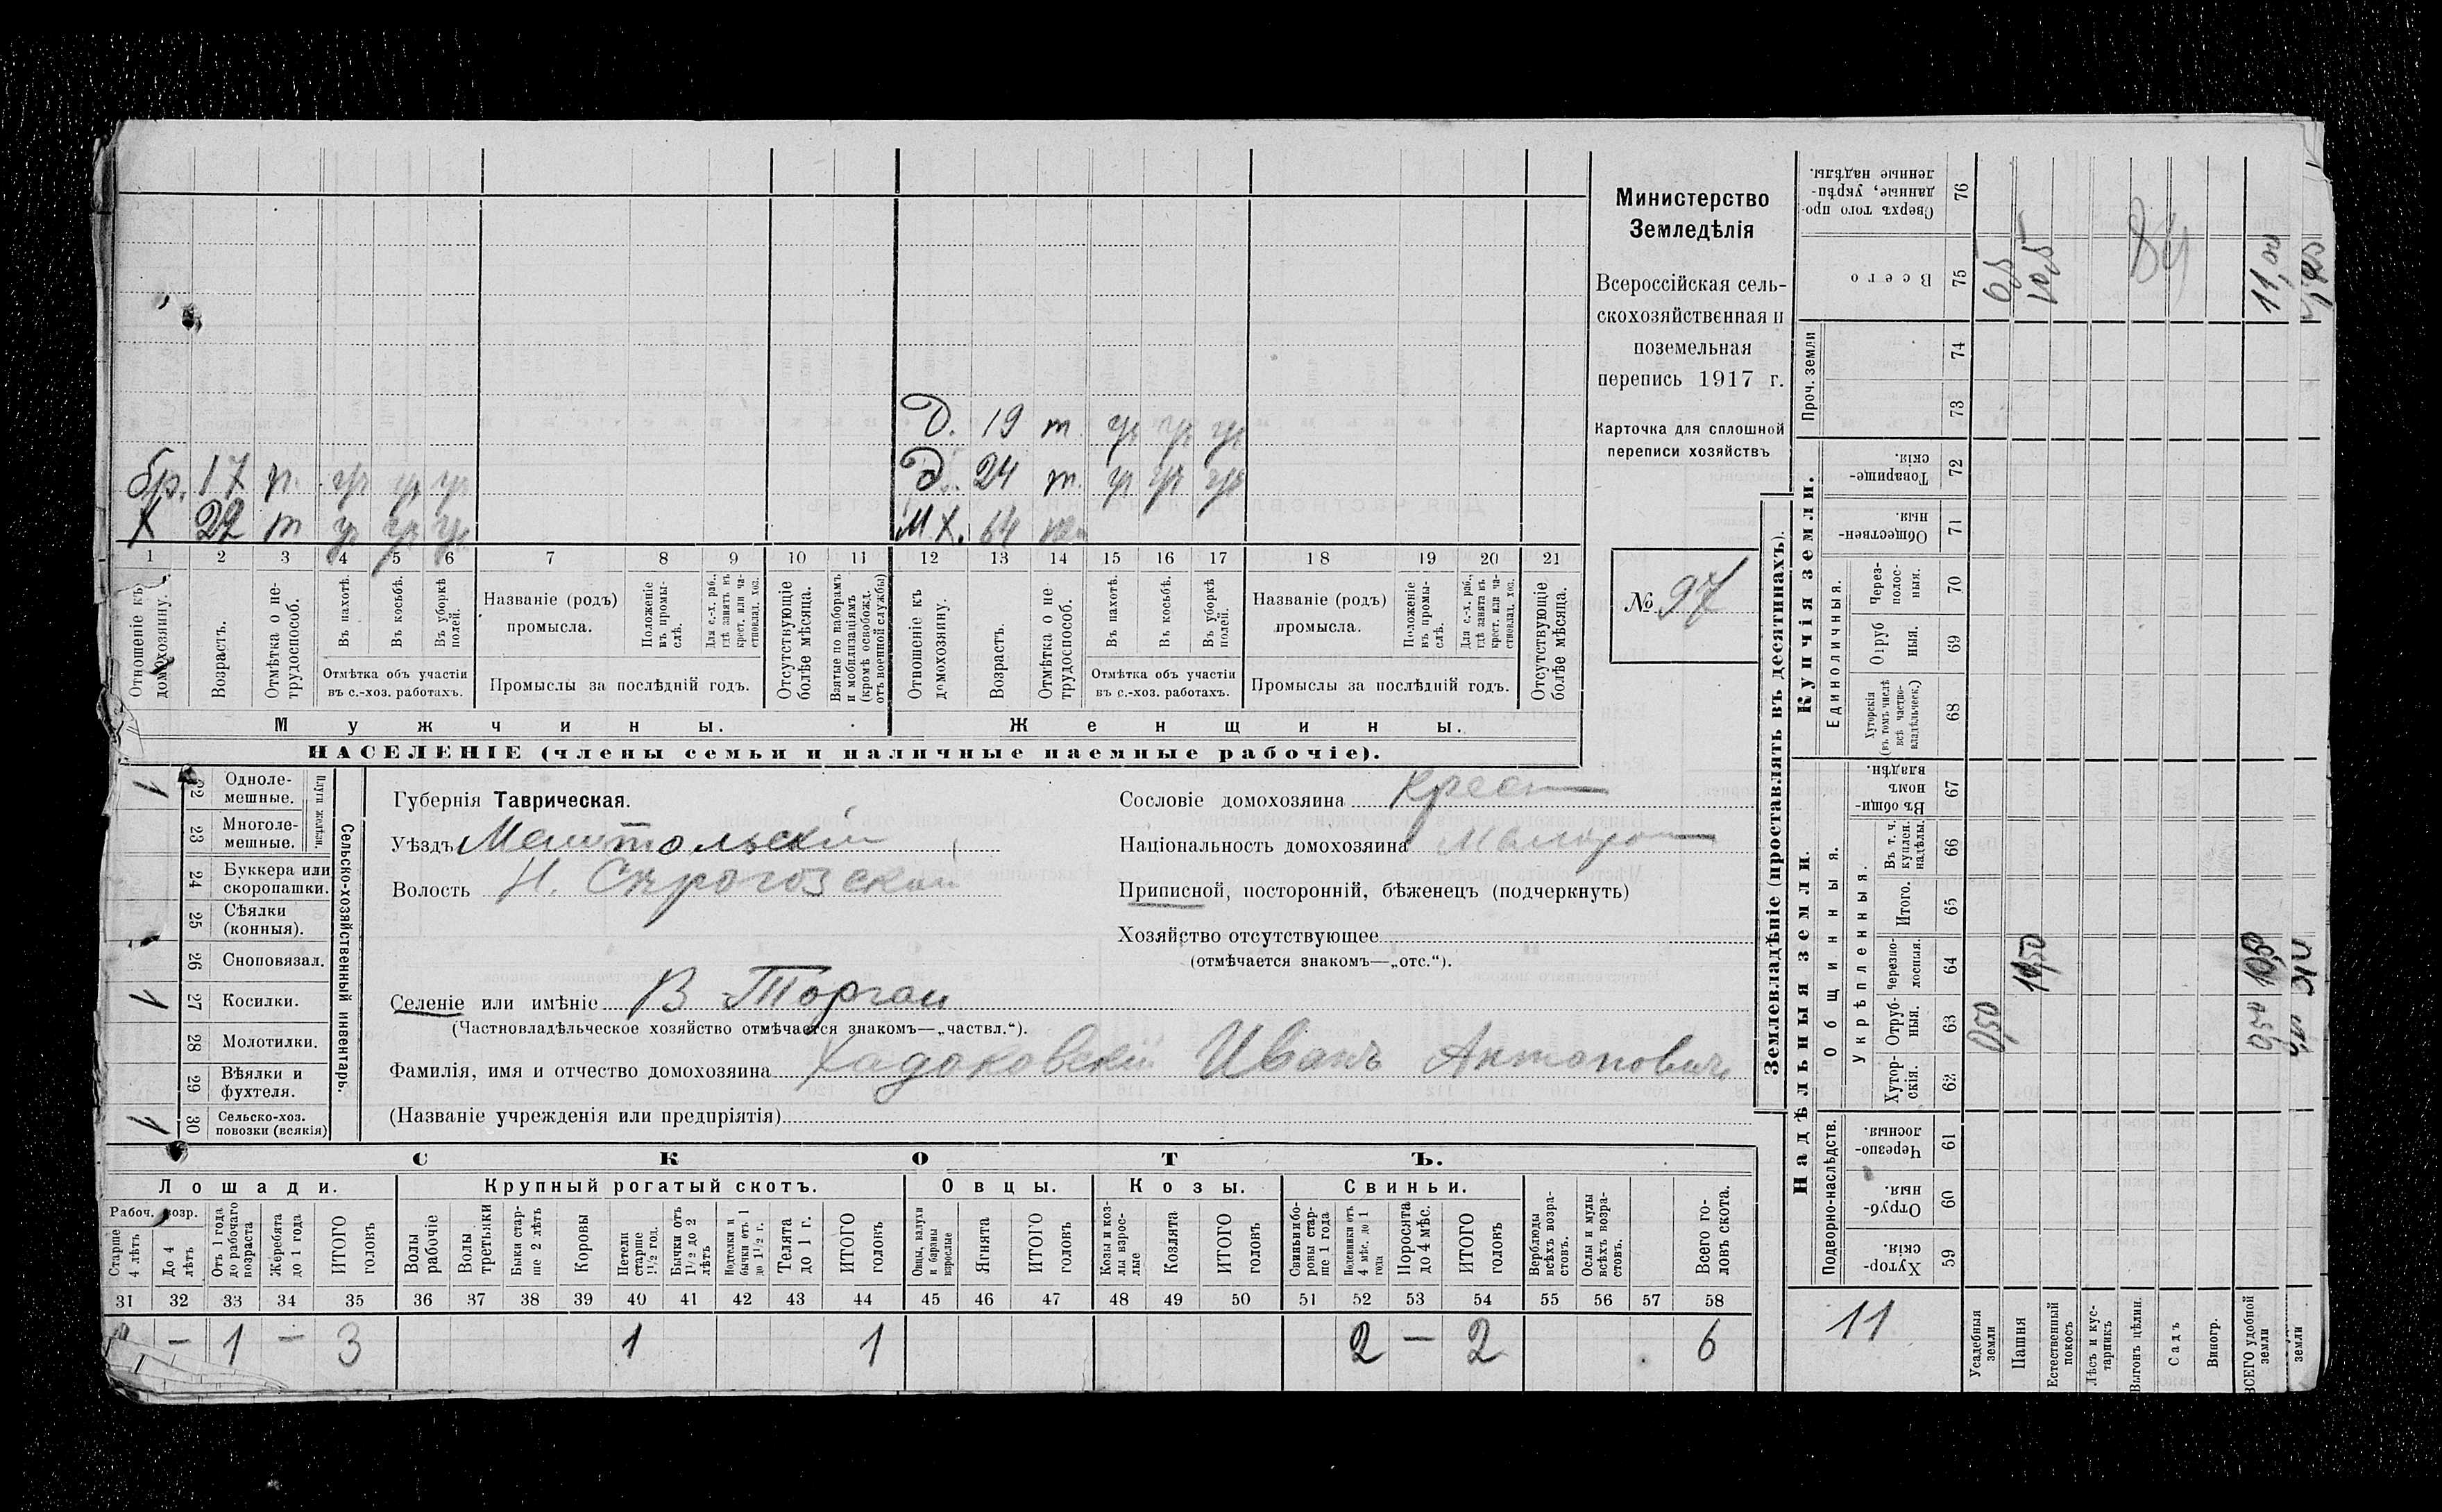 Министерство
Земледѣлія
Всероссійская сель-
скохозяйственная и
поземельная
перепись 1917 г.
Карточка для сплошной
переписи хозяйствъ
№ 97
Д. 19 т
бр. 17 п. Д. 24 т.
Х 22 т М Х. 64
1 2 3 4 5 6 7 8 9 10 11 12 13 14 15 16 17 18 19 20 21
Отношеніе къ домохозяину.
Возрастъ.
Отмѣтка о не-трудоспособ.
Въ пахотѣ.
Въ косьбѣ.
Въ уборкѣ полей.
Отмѣтка объ участіи
въ с.-хоз. работахъ.
Названіе (родъ)
промысла.
Положеніе въ промы-слѣ.
Для с.-х. раб., гдѣ занятъ въ крест. или ча-стновлад. хоз.
Промыслы за послѣдній годъ.
Отсутствующіе болѣе мѣсяца.
Взятые по наборамъ и мобилизаціямъ (кромѣ освобожд. отъ военной службы)
Отношеніе къ домохозяину.
Возрастъ.
Отмѣтка о не трудоспособ.
Въ пахотѣ.
Въ косьбѣ.
Въ уборкѣ полей.
Отмѣтка объ участіи
въ с.-хоз. работахъ.
Названіе (родъ)
промысла.
Положеніе въ промы-слѣ.
Для с.-х. раб., гдѣ занята въ крест. или ча-стновлад. хоз.
Промыслы за послѣдній годъ.
Отсутствующіе болѣе мѣсяца.
Мужчины. Женщины.
НАСЕЛЕНІЕ (члены семьи и наличные наемные рабочіе).
1 22 Одноле-мешные.
23 Многоле-мешные.
Плуги желѣзн.
24 Буккера или скоропашки.
25 Сѣялки (конныя).
26 Сноповязал.
1 27 Косилки.
28 Молотилки.
29 Вѣялки и фухтеля.
1 30 Сельско-хоз. повозки (всякія)
Сельско-хозяйственный инвентарь.
Губернія Таврическая.
Уѣздъ Мелитопольскій
Волость Н. Сѣрогозская
Селеніе или имѣніе В Торгаи
(Частновладѣльческое хозяйство отмѣчается знакомъ—„частвл.“).
Фамилія, имя и отчество домохозяина Хадаковскій Иванъ Антоновичъ
(Названіе учрежденія или предпріятія)
Сословіе домохозяина Крест
Національность домохозяина Малорос
Приписной, посторонній, бѣженецъ (подчеркнуть)
Хозяйство отсутствующее
(отмѣчается знакомъ—„отс.“).
СКОТЪ.
Лошади. Крупный рогатый скотъ. Овцы. Козы. Свиньи.
Рабоч. возр.
Старше 4 лѣтъ
До 4 лѣтъ
Отъ 1 года до рабочаго возраста
Жеребята до 1 года
ИТОГО головъ
Волы рабочіе
Волы третьяки
Быки стар-ше 2 лѣтъ
Коровы
Нетели старше 1½ год.
Бычки отъ 1½ до 2 лѣтъ
Нетелки и бычки отъ 1 до 1½ г.
Телята до 1 г.
ИТОГО головъ
Овцы, валухи и бараны взрослые
Ягнята
ИТОГО головъ
Козы и коз-лы взрос-лые
Козлята
ИТОГО головъ
Свиньи и бо-ровы стар-ше 1 года
Подсвинки отъ 4 мѣс. до 1 года
Поросята до 4 мѣс.
ИТОГО головъ
Верблюды всѣхъ возра-стовъ.
Ослы и мулы всѣхъ возра-стовъ.
Всего го-ловъ скота.
31 32 33 34 35 36 37 38 39 40 41 42 43 44 45 46 47 48 49 50 51 52 53 54 55 56 57 58
— 1 — 3 1 1 2 — 2 6
Землевладѣніе (проставлять въ десятинахъ).
Купчія земли.
Надѣльныя земли.
Сверхъ того про-данные, укрѣп-ленные надѣлы. 76
Всего 75 11,00
84
Проч. земли 74 73
Товарище-скія. 72
Обществен-ныя. 71
Единоличныя.
Через-полос-ныя. 70
Отруб ныя. 69
Хуторскія (въ томъ числѣ всѣ частно-владѣльческ.) 68
Общинныя.
Въ общи-номъ владѣн. 67
Укрѣпленныя.
Въ т. ч. куплен. надѣлы. 66
Итого. 65
Черезпо-лосныя. 64 1050
Отруб-ныя. 63 050
Хутор-скія. 62
Подворно-наслѣдств.
Черезпо-лосныя. 61
Отруб-ныя. 60
Хутор-скія. 59
11
Усадебныя земли
Пашня
Естественный покосъ
Лѣсъ и кус-тарникъ
Выгонъ цѣлин.
Садъ
Виногр.
ВСЕГО удобной земли
земли